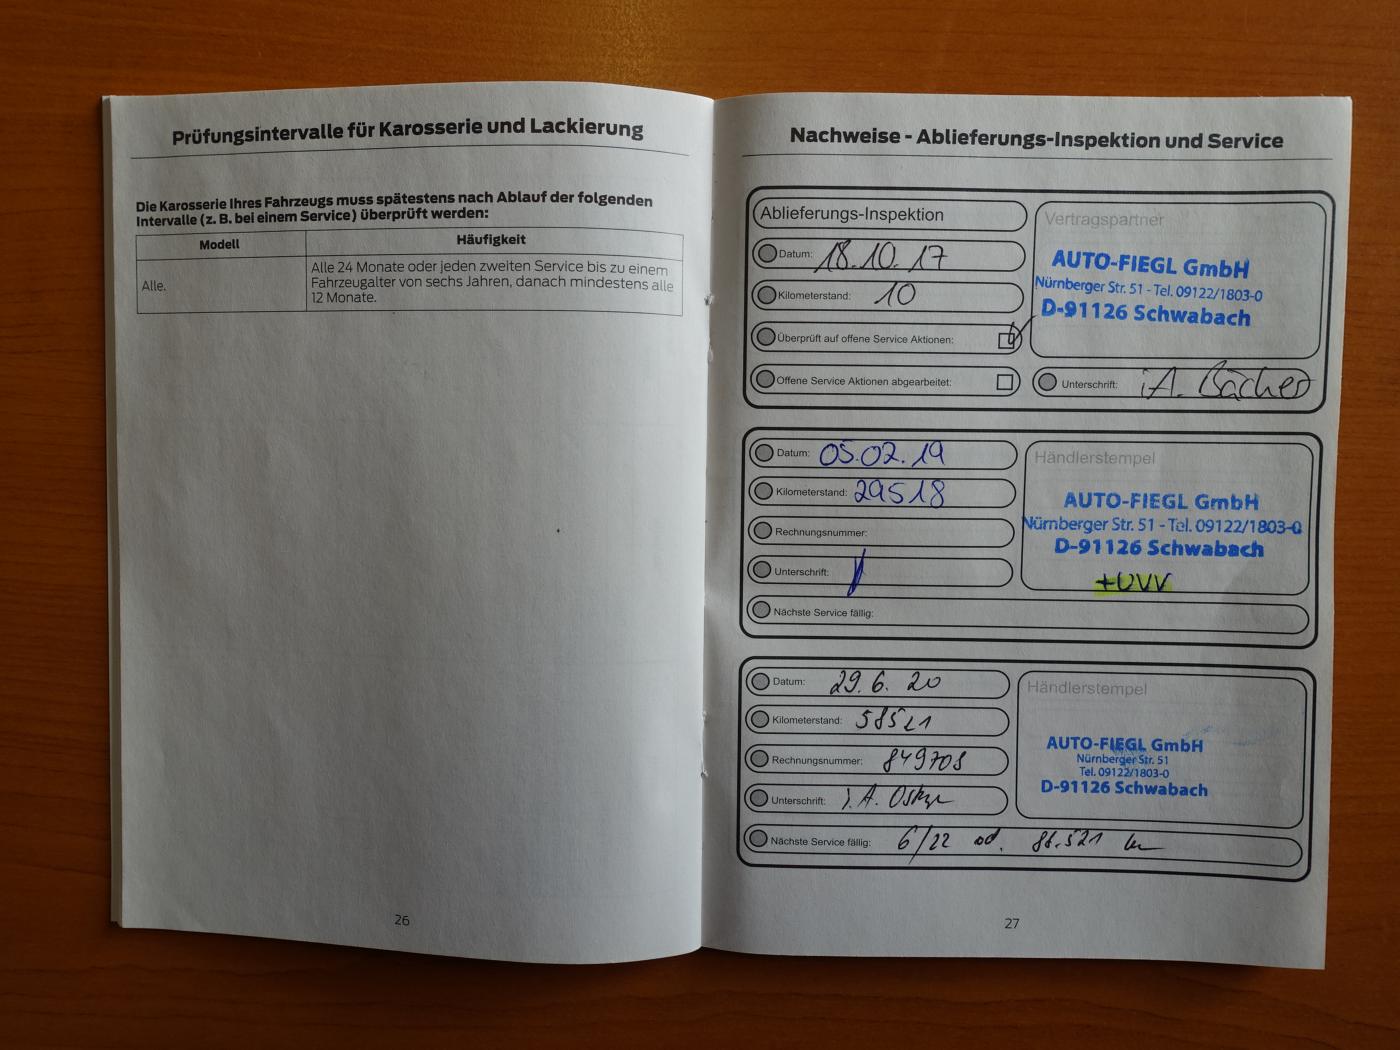 Prüfungsintervalle für Karosserie und Lackierung
Die Karosserie Ihres Fahrzeugs muss spätestens nach Ablauf der folgenden
Intervalle (z. B. bei einem Service) überprüft werden:
Modell Häufigkeit
Alle. Alle 24 Monate oder jeden zweiten Service bis zu einem
Fahrzeugalter von sechs Jahren, danach mindestens alle
12 Monate.
26
Nachweise - Ablieferungs-Inspektion und Service
Ablieferungs-Inspektion
Datum: 18.10.17
Kilometerstand: 10
Überprüft auf offene Service Aktionen:
Offene Service Aktionen abgearbeitet:
Vertragspartner
AUTO-FIEGL GmbH
Nürnberger Str. 51 - Tel. 09122/1803-0
D-91126 Schwabach
Unterschrift: i.A. Bächer
Datum: 05.02.19
Kilometerstand: 29518
Rechnungsnummer:
Unterschrift:
Nächste Service fällig:
Händlerstempel
AUTO-FIEGL GmbH
Nürnberger Str. 51 - Tel. 09122/1803-0
D-91126 Schwabach
+UVV
Datum: 29.6.20
Kilometerstand: 58521
Rechnungsnummer: 849708
Unterschrift: i.A.
Nächste Service fällig: 6/22 od. 88.521 km
Händlerstempel
AUTO-FIEGL GmbH
Nürnberger Str. 51
Tel. 09122/1803-0
D-91126 Schwabach
27